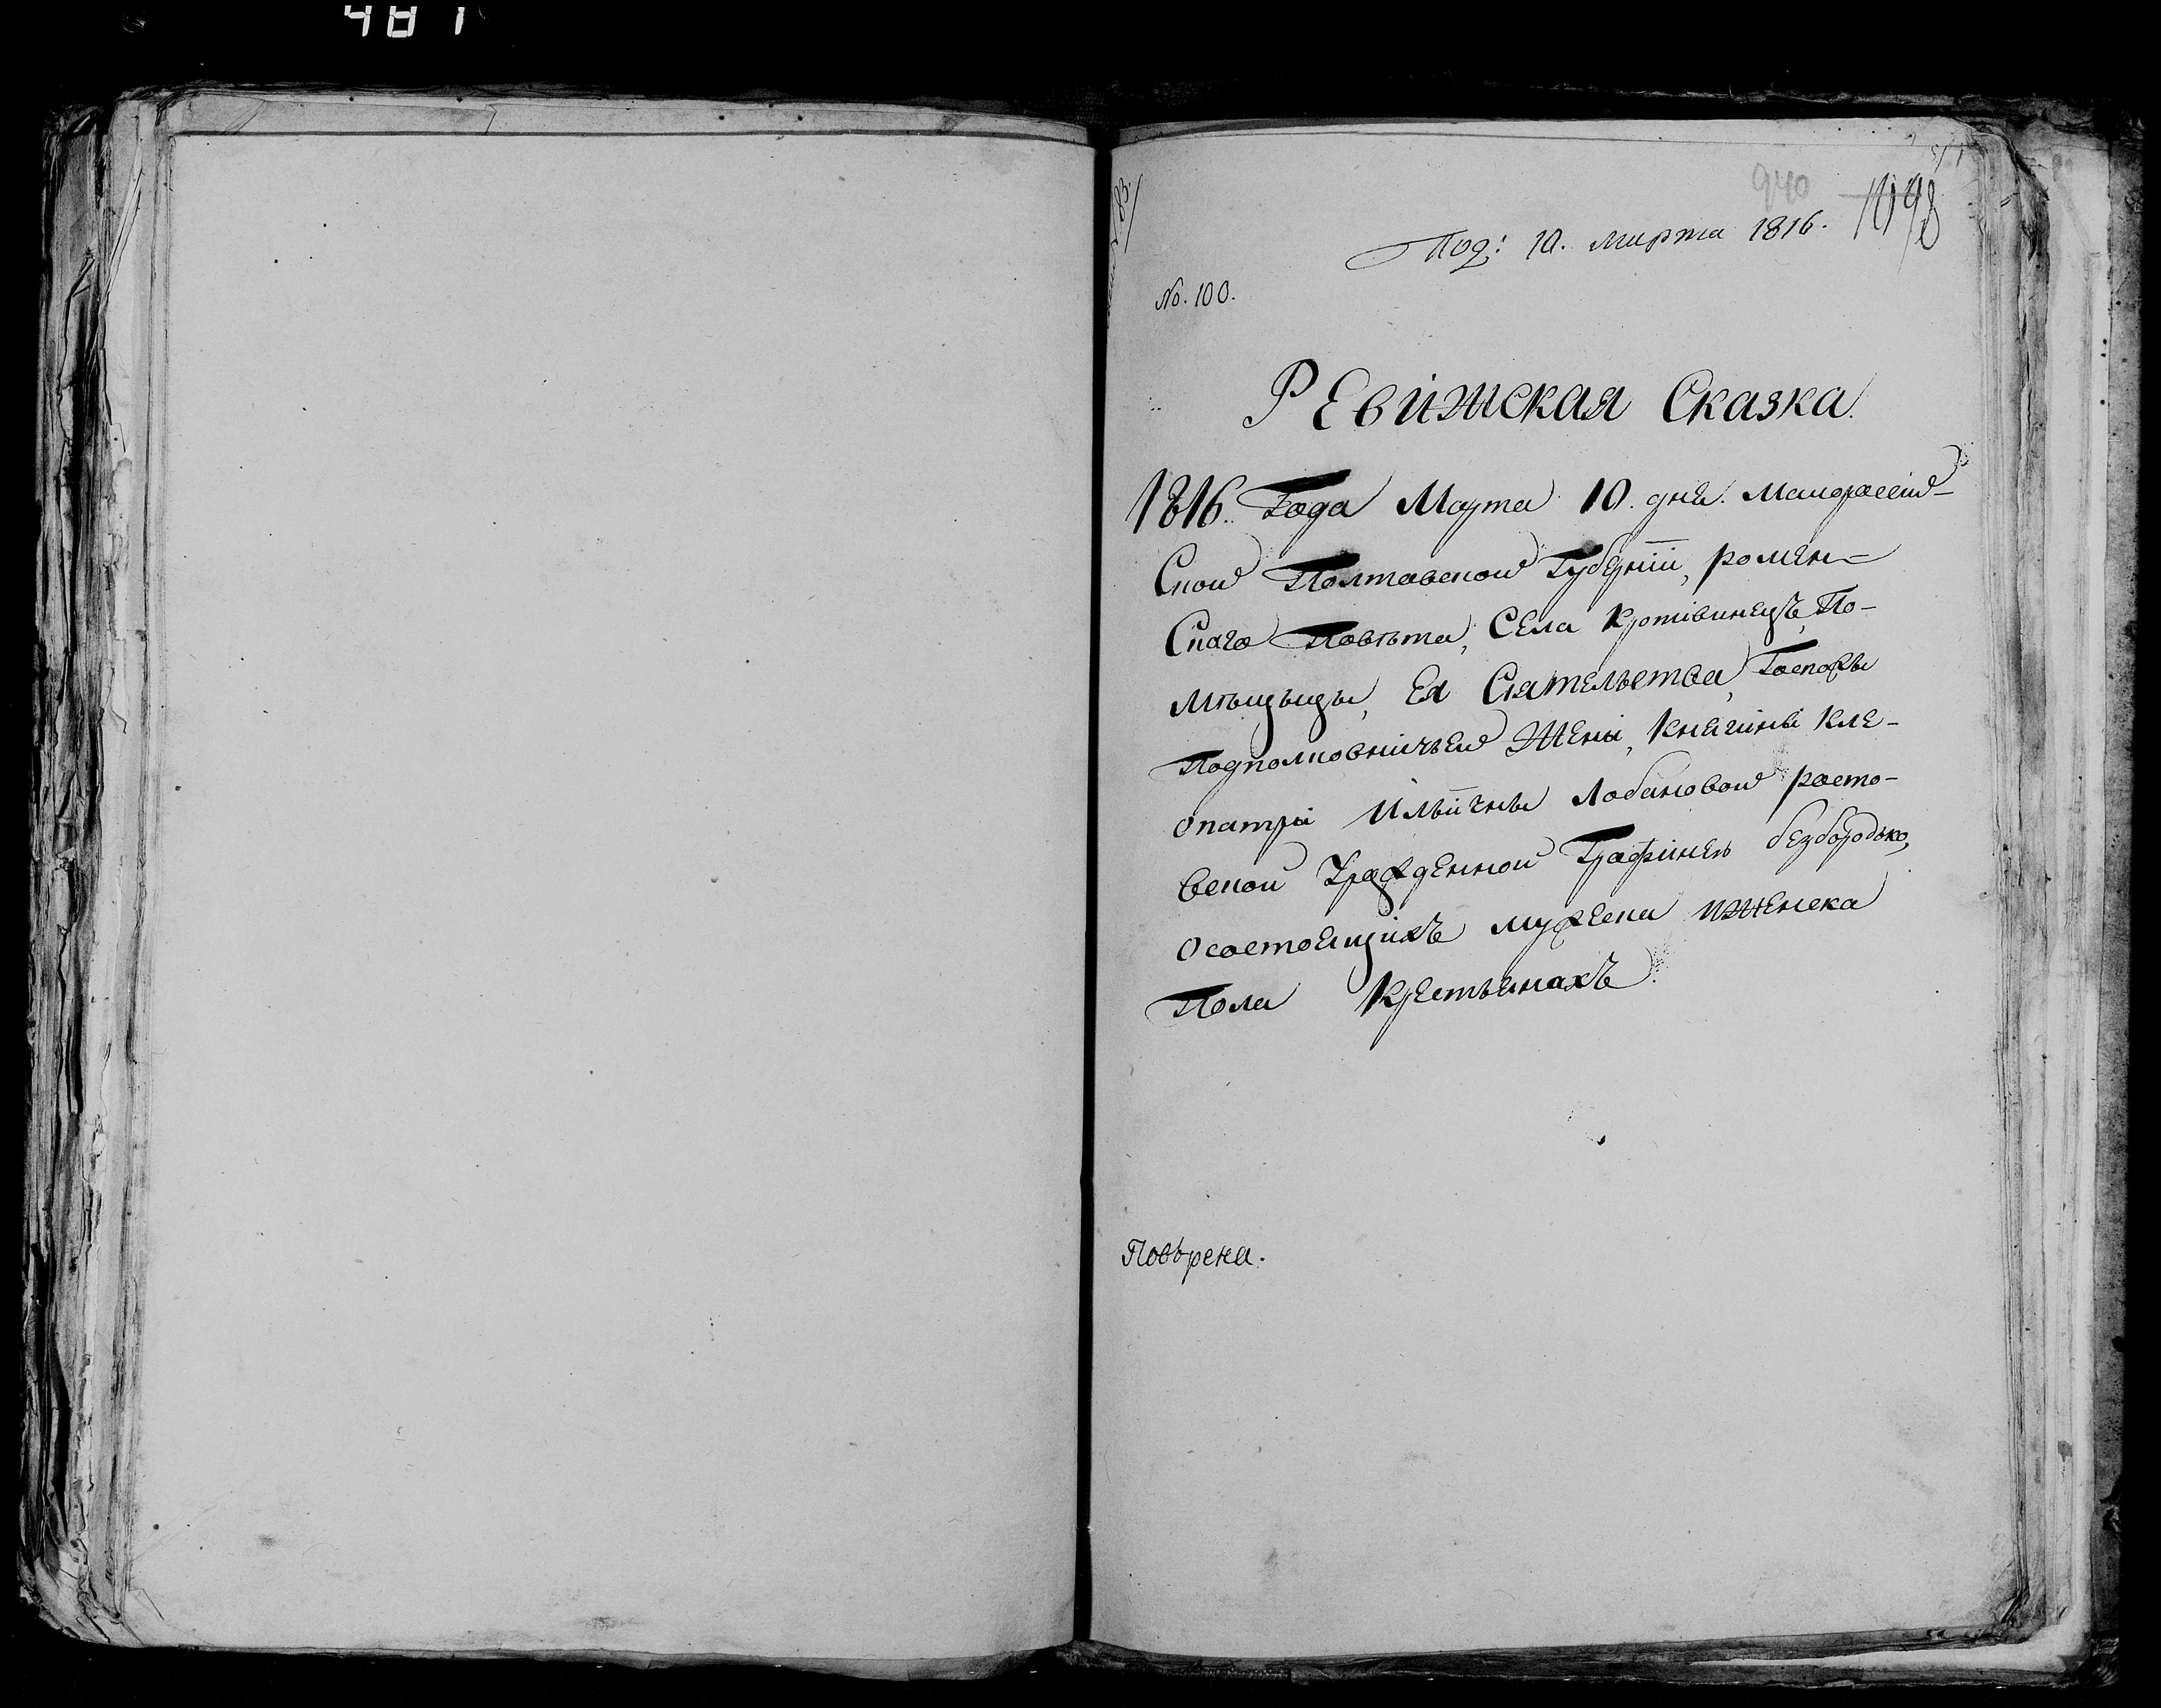 481
940
1098
Под: 10. марта 1816.
No. 100.
Ревижская Сказка.
1816. Года Марта 10. дня. Малоросий-
Скои Полтавскои Губерніи, ромен-
Скаго Повѣта, Села Кротівинецъ, По-
мѣщыцы, Ея Сіятельства, Госпожы
Подполковничъеи Жени, Княгіни Кле-
опатри Ильиїчны Лобановои росто-
вскои Урожденнои Графінеи безбородько,
осостоящихъ мужеска иженска
Пола Крестьянахъ.
Повѣрена.